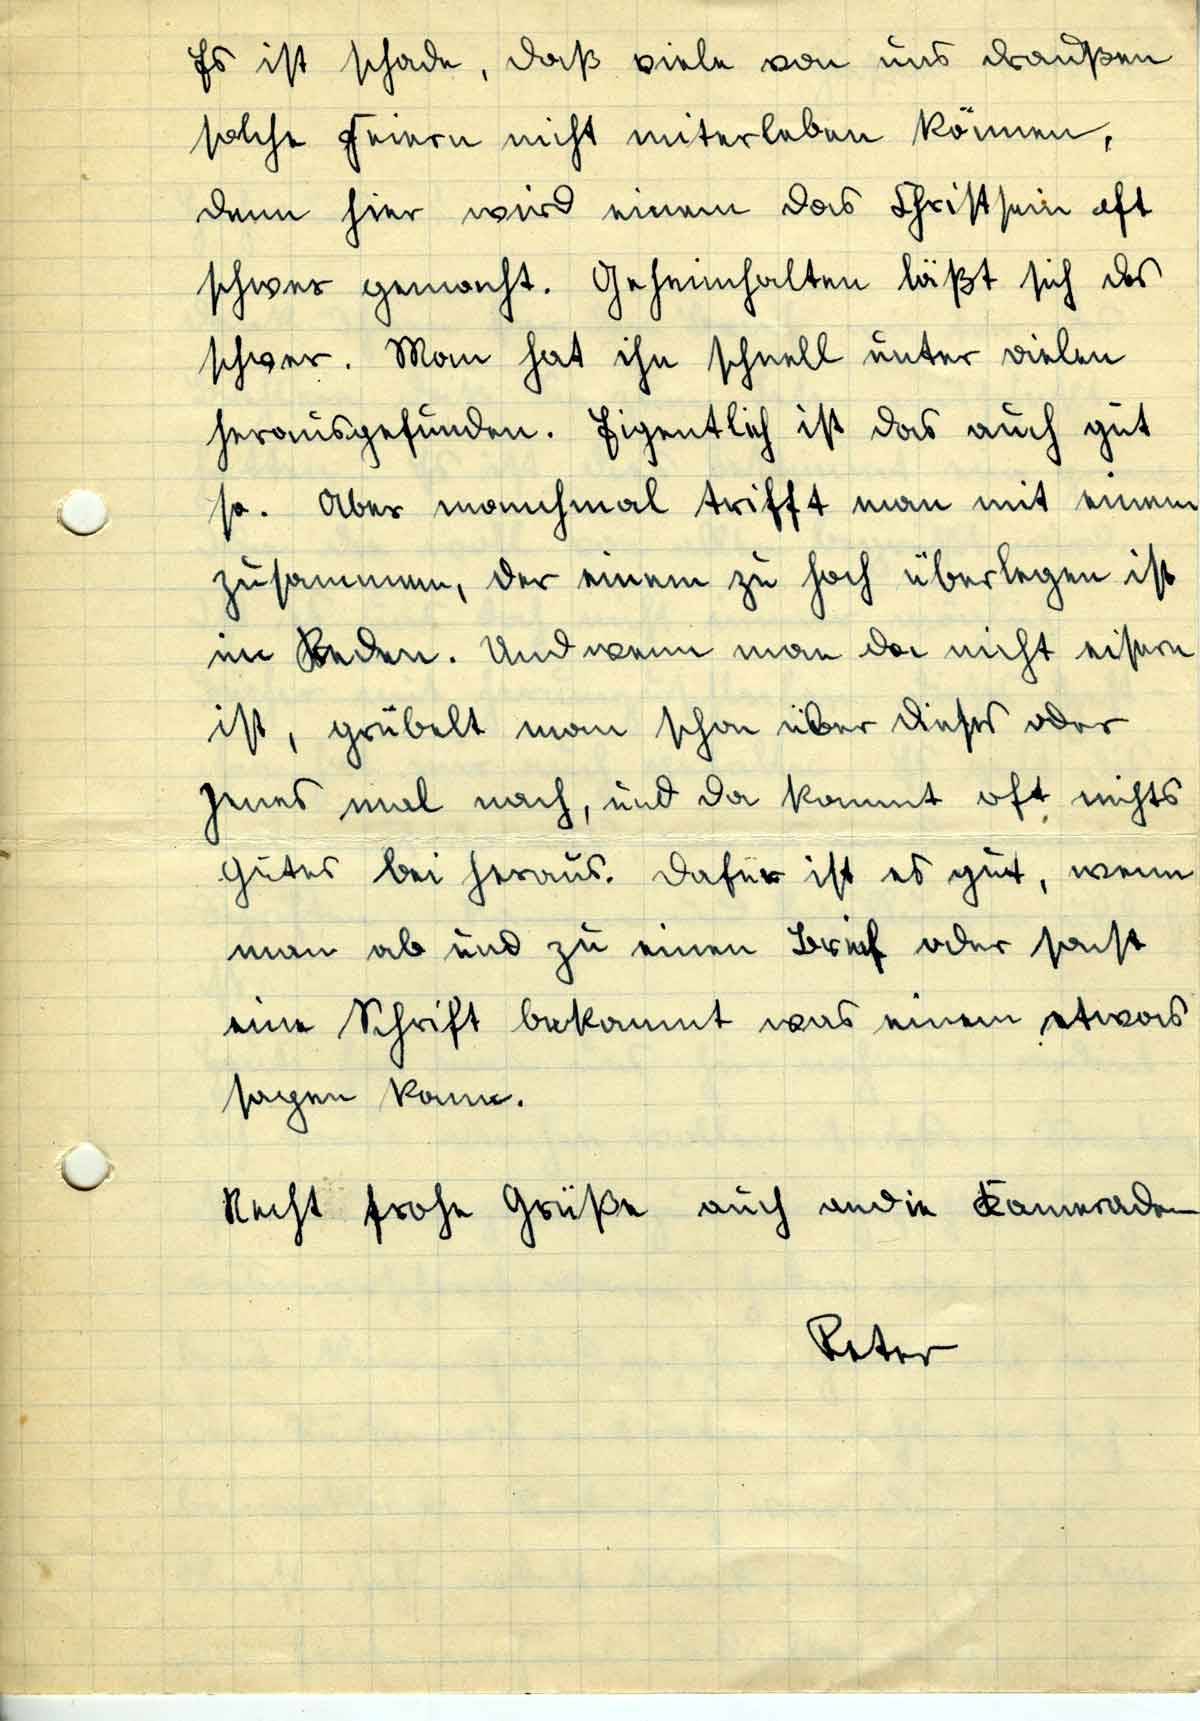 Es ist schade, daß viele von uns draußen
solche Feiern nicht miterleben können,
denn hier wird einem das Christsein oft
schwer gemacht. Geheimhalten läßt sich das
schwer. Man hat ihn schnell unter vielen
herausgefunden. Eigentlich ist das auch gut
so. Aber manchmal trifft man mit einem
zusammen, der einem zu hoch überlegen ist
im Reden. Und wenn man da nicht eisern
ist, grübelt man schon über dieses oder
Jenes mal nach, und da kommt oft nichts
Gutes bei heraus. Dafür ist es gut, wenn
man ab und zu einen Brief oder sonst
eine Schrift bekommt was einem etwas
sagen kann.
Recht frohe Grüße auch an die Kameraden
Peter